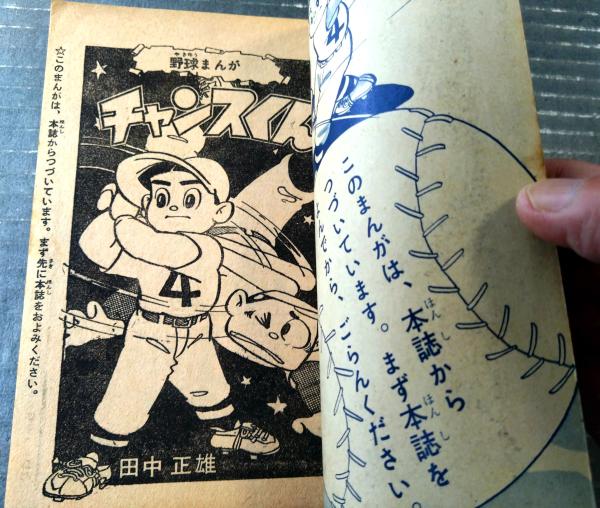 野球まんが
やきゅう
チャンスくん
4
田中正雄
☆このまんがは、本誌からつづいています。まず先に本誌をおよみください。
ほんし
さき
ほんし
4
このまんがは、本誌から
ほんし
つづいています。まず本誌を
ほんし
よんでから、ごらんください。